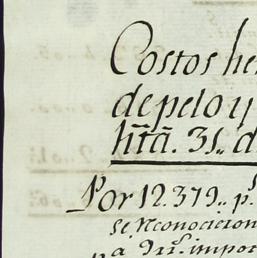 Costos he
de pelo y
hta. 31,, d
Por 12.379,, p.s
se Reconocieron